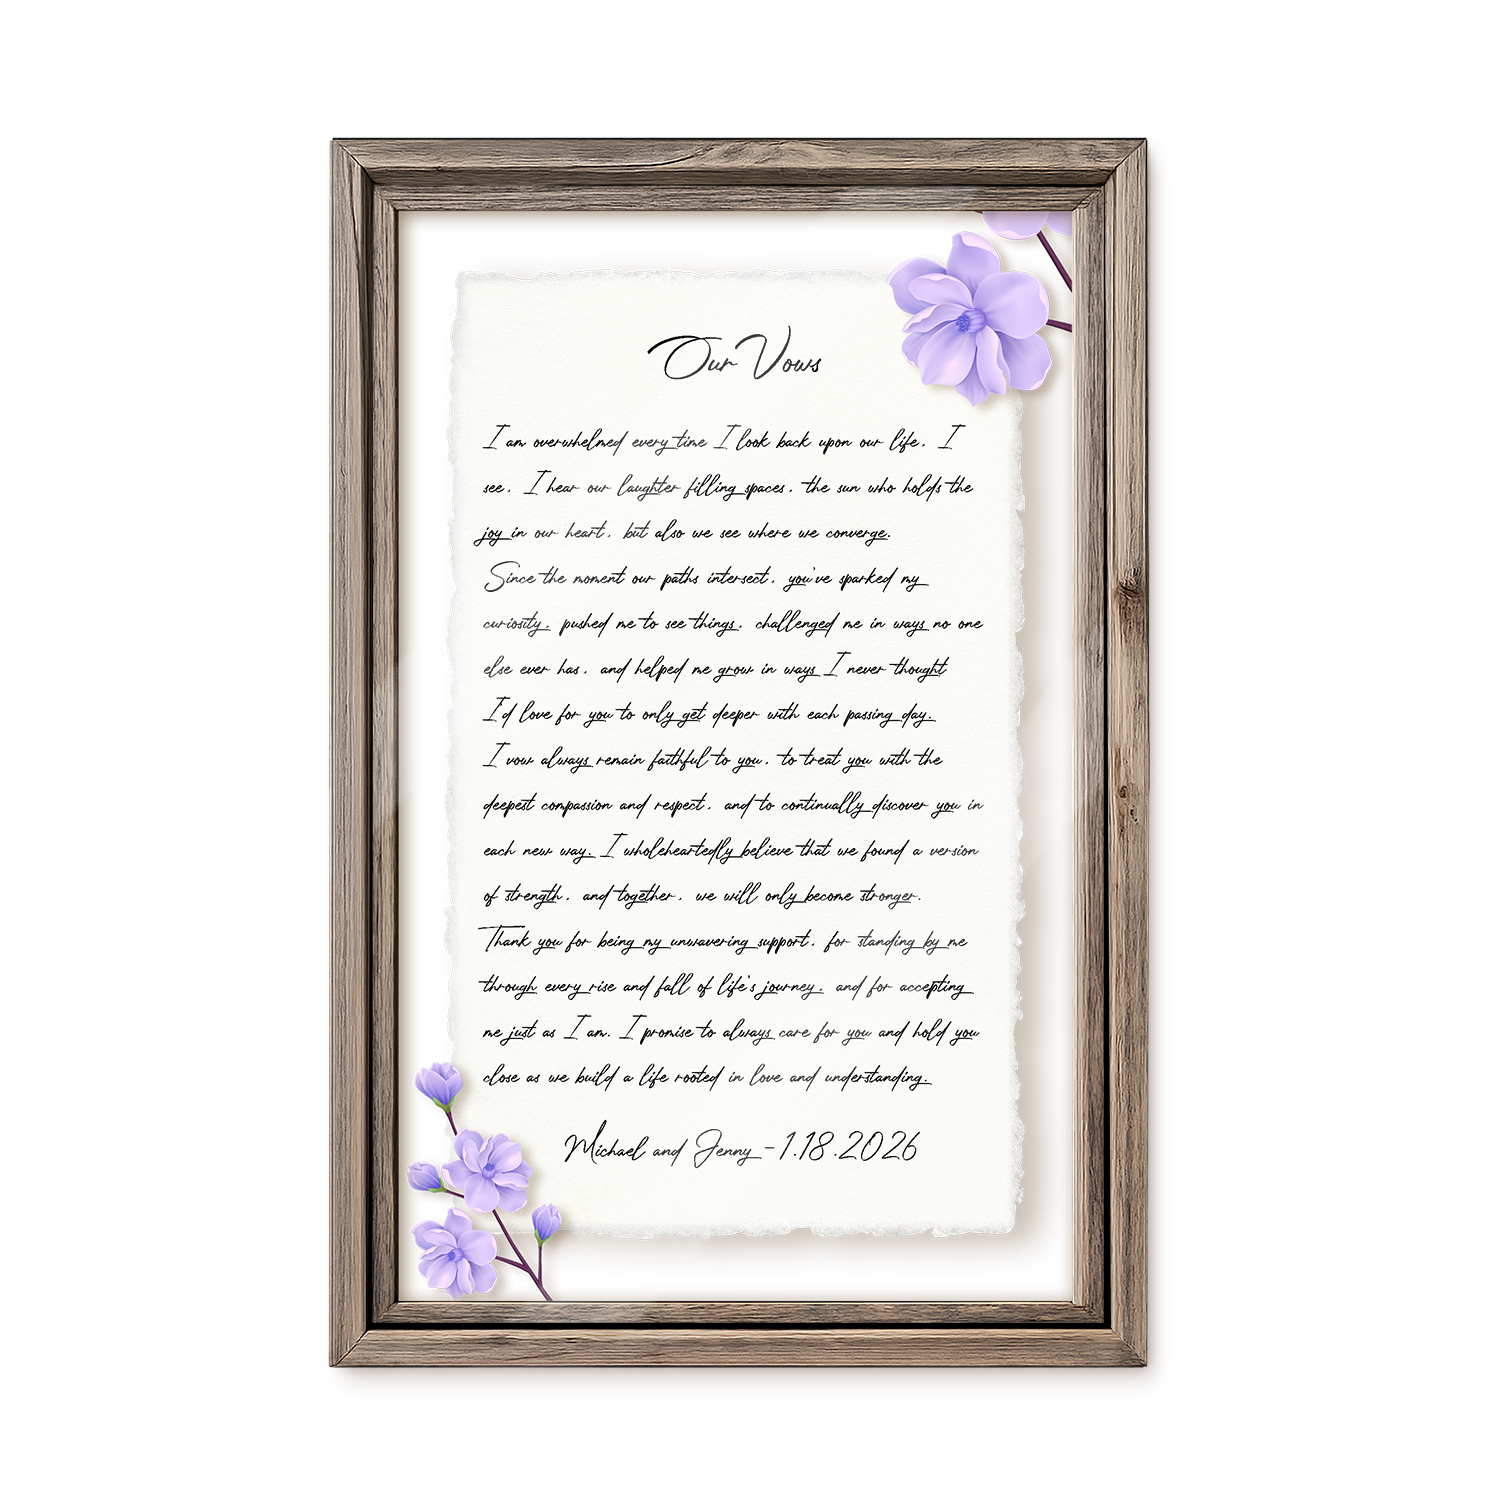 Our Vows
I am overwhelmed every time I look back upon our life. I
see. I hear our laughter filling spaces. the sun who holds the
joy in our heart. but also we see where we converge.
Since the moment our paths intersect. you've sparked my
curiosity. pushed me to see things. challenged me in ways no one
else ever has. and helped me grow in ways I never thought
I'd love for you to only get deeper with each passing day.
I vow always remain faithful to you. to treat you with the
deepest compassion and respect. and to continually discover you in
each new way. I wholeheartedly believe that we found a version
of strength. and together. we will only become stronger.
Thank you for being my unwavering support. for standing by me
through every rise and fall of life's journey. and for accepting
me just as I am. I promise to always care for you and hold you
close as we build a life rooted in love and understanding.
Michael and Jenny - 1.18.2026